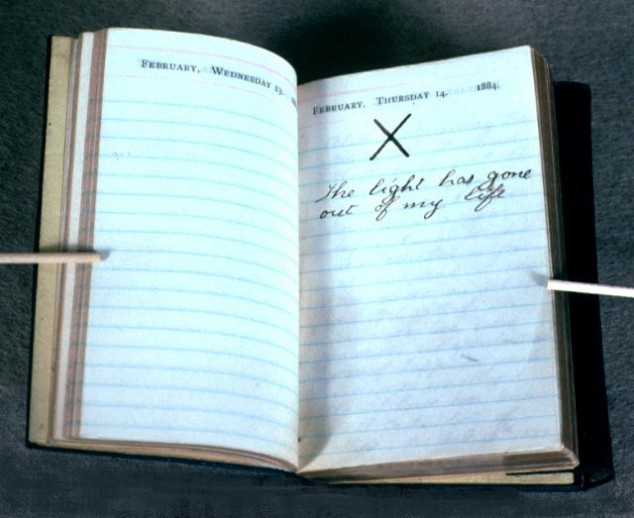 FEBRUARY, WEDNESDAY 13.
FEBRUARY. THURSDAY 14. 1884.
X
The light has gone
out of my life